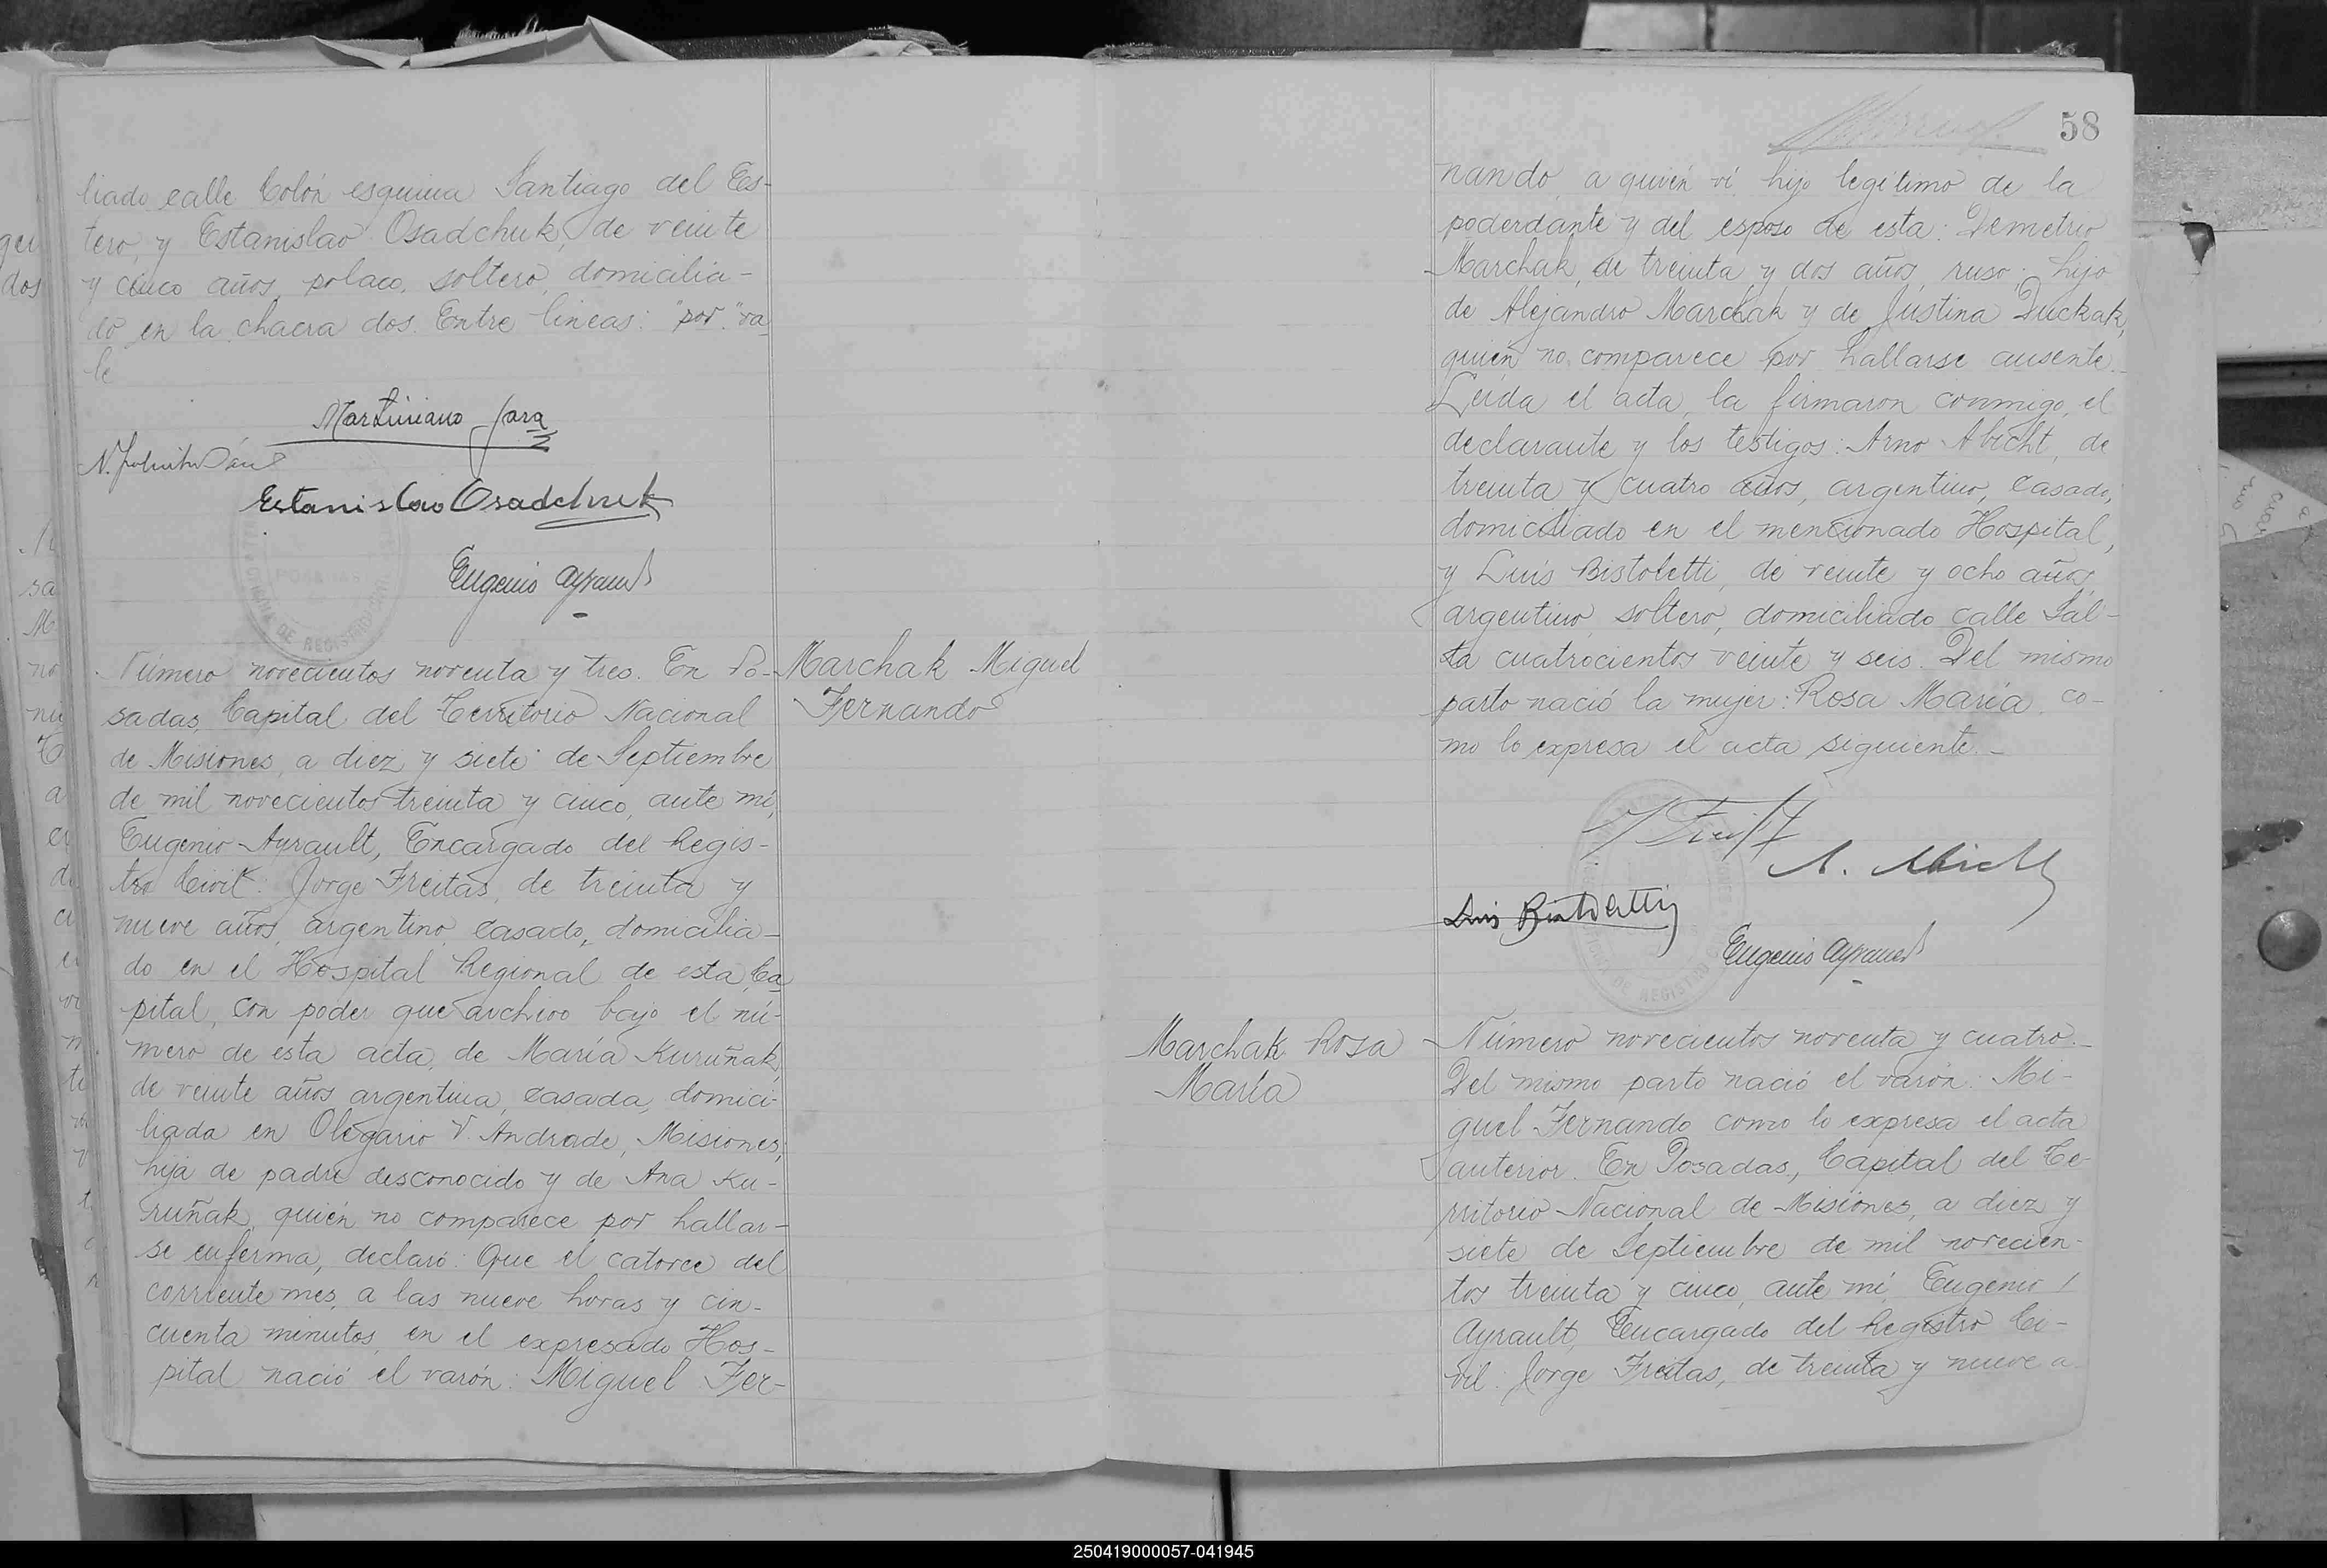 liado calle Colón esquina Santiago del Es-
tero, y Estanislao Osadchuk, de veinte
y cinco años, polaco, soltero, domicilia-
do en la chacra dos. Entre lineas: "por" va
le
Martiniano Jara
Estanislao Osadchuk
Eugenio Ayrault
Número novecientos noventa y tres. En Po-
sadas, Capital del Territorio Nacional
de Misiones, a diez y siete de Septiembre
de mil novecientos treinta y cinco, ante mí,
Eugenio Ayrault, Encargado del Regis-
tro Civil: Jorge Freitas, de treinta y
nueve años, argentino, casado, domicilia-
do en el Hospital Regional de esta Ca
pital, con poder que archivo bajo el nú-
mero de esta acta, de María Kuruñak,
de veinte años argentina, casada, domici-
liada en Olegario V. Andrade, Misiones,
hija de padre desconocido y de Ana Ku-
ruñak, quién no comparece por hallar-
se enferma, declaró: Que el catorce del
corriente mes, a las nueve horas y cin-
cuenta minutos, en el expresado Hos-
pital nació el varón: Miguel Fer-
Marchak Miguel
Fernando
58
nando, a quién ví, hijo legítimo de la
poderdante y del esposo de esta: Demetrio
Marchak, de treinta y dos años, ruso, hijo
de Alejandro Marchak y de Justina Duckak,
quién no comparece por hallarse ausente.
Leída el acta, la firmaron conmigo, el
declarante y los testigos: Arno Abicht, de
treinta y cuatro años, argentino, casado,
domiciliado en el mencionado Hospital,
y Luis Bistoletti, de veinte y ocho años,
argentino, soltero, domiciliado calle Sal-
ta cuatrocientos veinte y seis. Del mismo
parto nació la mujer: Rosa María, co-
mo lo expresa el acta siguiente.-
A. Abicht
Luis Bistoletti
Eugenio Ayrault
Marchak Rosa
María
Número novecientos noventa y cuatro.-
Del mismo parto nació el varón: Mi-
guel Fernando como lo expresa el acta
anterior. En Posadas, Capital del Te-
rritorio Nacional de Misiones, a diez y
siete de Septiembre de mil novecien-
tos treinta y cinco, ante mí, Eugenio
Ayrault, Encargado del Registro Ci-
vil: Jorge Freitas, de treinta y nueve a
250419000057-041945